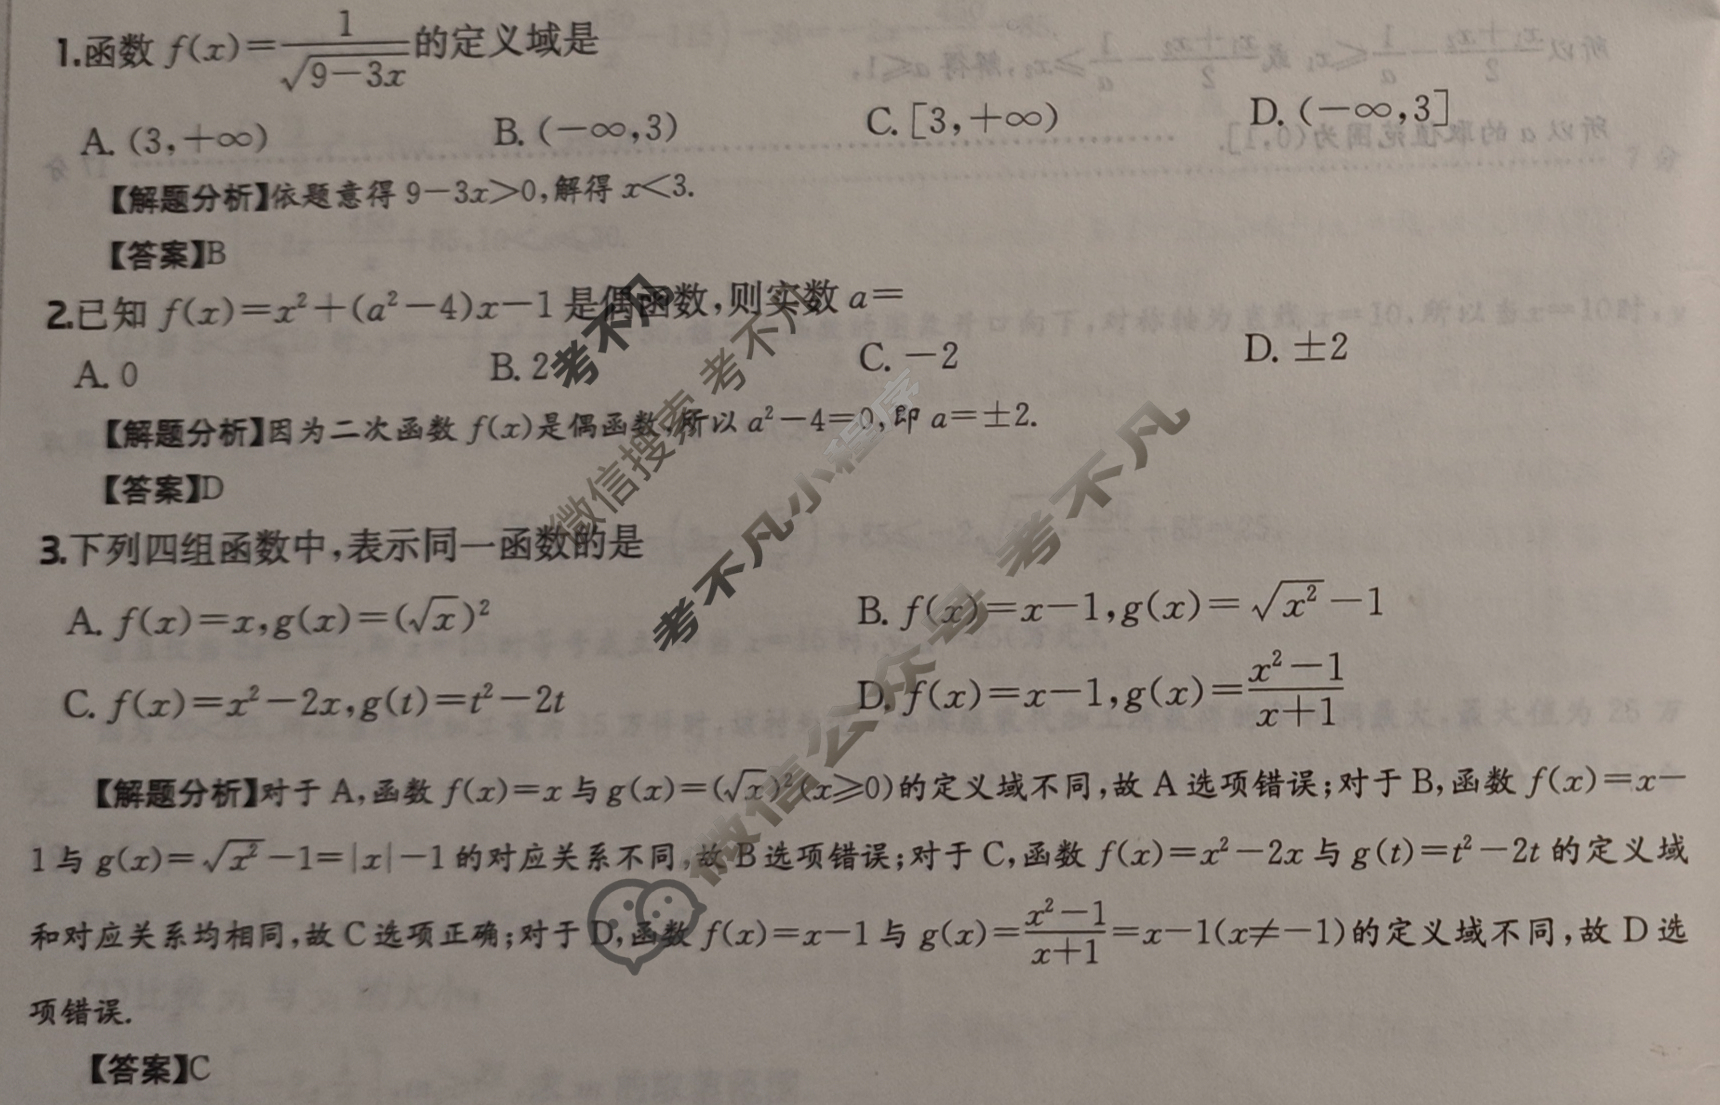 1.函数 f(x)=1/√(9-3x) 的定义域是
A. (3,+∞) B. (-∞,3) C. [3,+∞) D. (-∞,3]
【解题分析】依题意得 9-3x>0,解得 x<3.
【答案】B
2.已知 f(x)=x²+(a²-4)x-1 是偶函数,则实数 a=
A. 0 B. 2 C. -2 D. ±2
【解题分析】因为二次函数 f(x)是偶函数,所以 a²-4=0,即 a=±2.
【答案】D
3.下列四组函数中,表示同一函数的是
A. f(x)=x,g(x)=(√x)² B. f(x)=x-1,g(x)=√x²-1
C. f(x)=x²-2x,g(t)=t²-2t D. f(x)=x-1,g(x)=(x²-1)/(x+1)
【解题分析】对于 A,函数 f(x)=x 与 g(x)=(√x)²(x≥0)的定义域不同,故 A 选项错误;对于 B,函数 f(x)=x-
1 与 g(x)=√x²-1=|x|-1 的对应关系不同,故 B 选项错误;对于 C,函数 f(x)=x²-2x 与 g(t)=t²-2t 的定义域
和对应关系均相同,故 C 选项正确;对于 D,函数 f(x)=x-1 与 g(x)=(x²-1)/(x+1)=x-1(x≠-1)的定义域不同,故 D 选
项错误.
【答案】C
考不凡
微信搜索 考不凡
考不凡小程序
微信公众号 考不凡